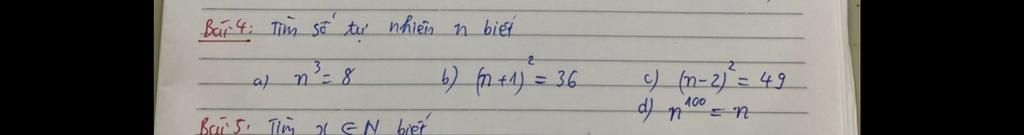 Bài 4: Tìm số tự nhiên n biết
a) n³ = 8 b) (n+1)² = 36 c) (n-2)² = 49
d) n¹⁰⁰ = n
Bài 5: Tìm x ∈ N biết